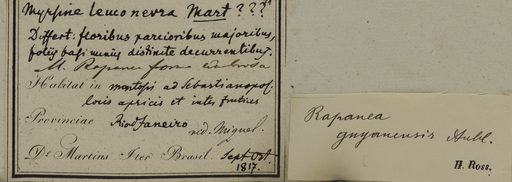 Myrsine leuconevra Mart ???
Differt: floribus parcioribus majoribus,
foliis basi minus distincte decurrentibus.
M. Rapanea forma umbrosa
Habitat in montosis ad Sebastianopol.
locis apricis et inter frutices
Provinciae Rio de Janeiro
Miguel.
Dr. Martius Iter Brasil. Sept Oct
1817.
Rapanea
guyanensis Aubl.
H. Ross.